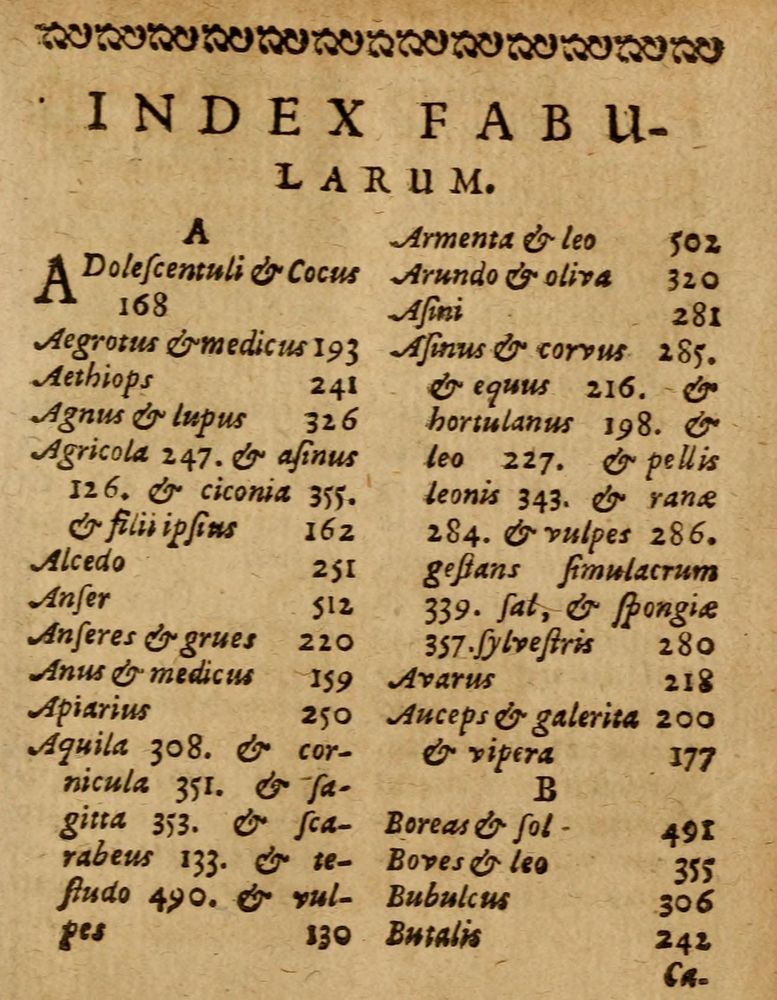 INDEX FABU-
LARUM.
A
ADoleſcentuli & Cocus
168
Aegrotus & medicus 193
Aethiops 241
Agnus & lupus 326
Agricola 247. & aſinus
126. & ciconia 355.
& filii ipſius 162
Alcedo 251
Anſer 512
Anſeres & grues 220
Anus & medicus 159
Apiarius 250
Aquila 308. & cor-
nicula 351. & ſa-
gitta 353. & ſca-
rabeus 133. & te-
ſtudo 490. & vul-
pes 130
Armenta & leo 502
Arundo & oliva 320
Aſini 281
Aſinus & corvus 285.
& equus 216. &
hortulanus 198. &
leo 227. & pellis
leonis 343. & ranæ
284. & vulpes 286.
geſtans ſimulacrum
339. ſal, & ſpongiæ
357. ſylveſtris 280
Avarus 218
Auceps & galerita 200
& vipera 177
B
Boreas & ſol 491
Boves & leo 355
Bubulcus 306
Butalis 242
Ca-